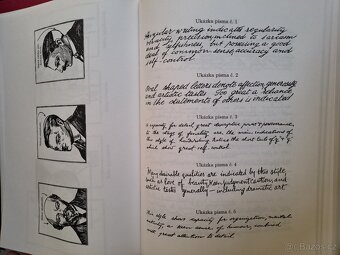 Ukázka písma č. 1
Angular writing indicates regularity
tenacity, precision, inclined to sarcasm
and selfishness, but possessing a good
deal of common sense, accuracy and
self control.
Ukázka písma č. 2
Oval shaped letters denote affection, generosity
and artistic tastes. Too great a reliance
in the statements of others is indicated
Ukázka písma č. 3
A capacity for detail, great descriptive power & perseverance,
to the verge of futility are the main indications of
this style of handwriting. Notice the short tails of g's & y's
which show great self control.
Ukázka písma č. 4
Many desirable qualities are indicated by this style,
such as love of beauty, keen judgement, action, and
artistic tastes generally — including dramatic art
Ukázka písma č. 5
This style shows capacity for organization, mental
activity, a keen sense of humour, combined
with great attention to detail.
bazoš.cz